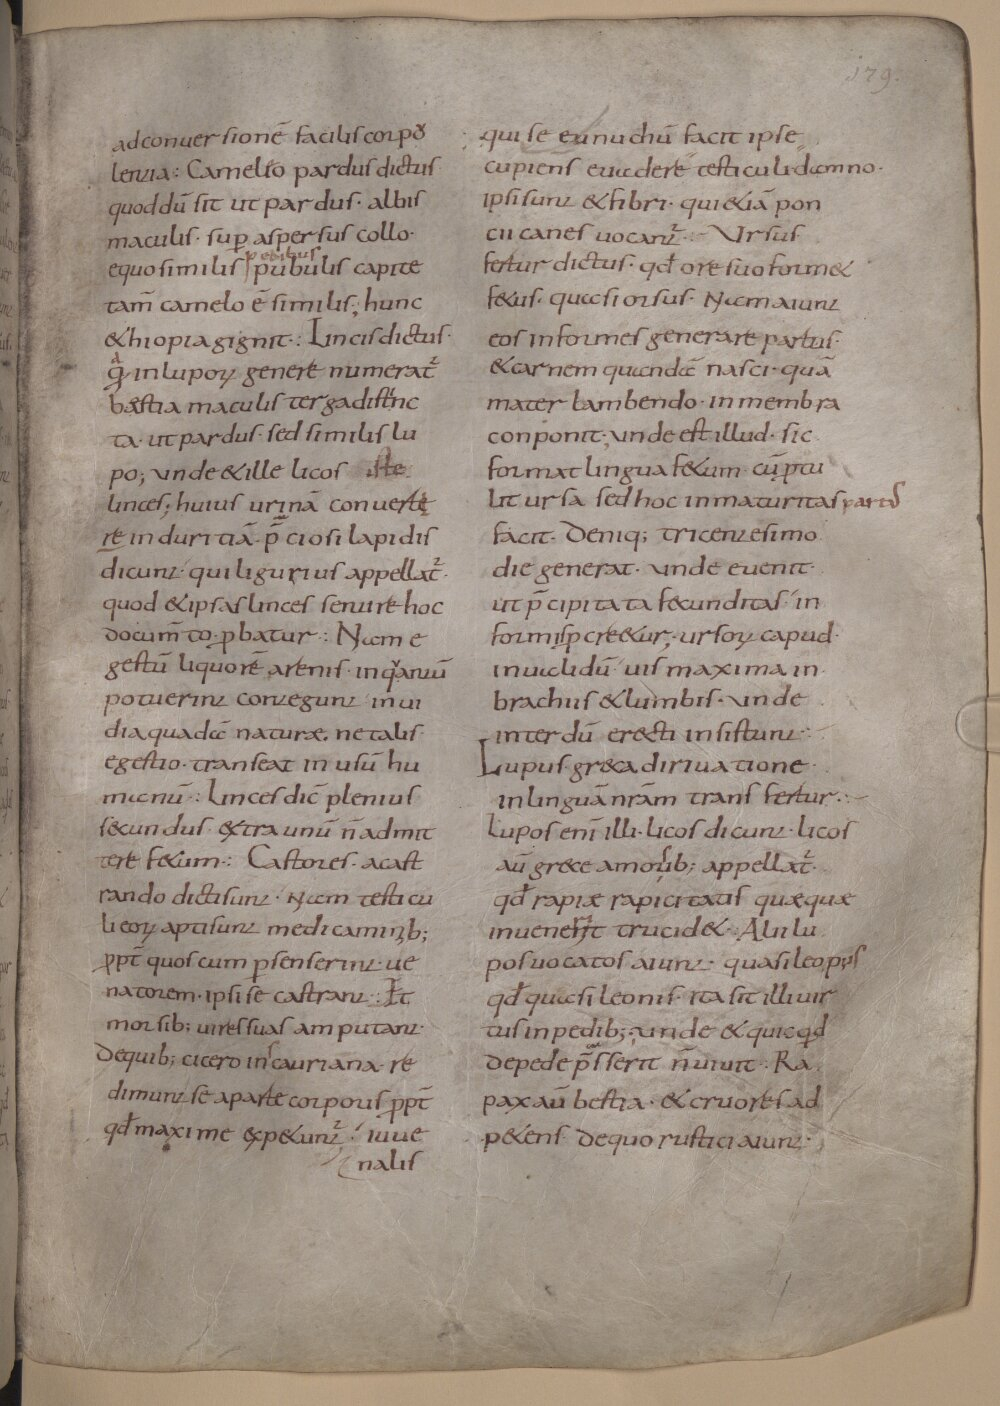 179.
adconuersionē facilis corpo
lentia: Camelo pardus dictus
quod dū sit ut pardus· albis
maculis· sup aspersus collo·
pedibus
equo similis pubulis capite
tam̄ camelo ē similis; hunc
&hiopia gignit·: Lincis dictus·
q̄ in lupoꝝ genere numerat̄
bestia maculis terga distinc
ta· ut pardus· sed similis lu
po; unde & ille licos iste
linces; huius urinā conuerte
re in duritiā· p̄ciosi lapidis
dicunt qui ligurius appellat̄·
quod & ipsas linces sentire hoc
docum̄to· ꝓbatur·: Nam e
gestū liquorē arenis· in quantū
potuerint contegunt in ui
dia quadā naturæ· ne talis
egestio· transeat in usū hu
manū·: Linces dic̄ plenius
secundus· extra unū n̄ admit
tere fetum·: Castores· a cast
rando dicti sunt· Nam testicu
li eoꝝ apti sunt medicaminib;
ꝓpt̄ quos cum psenserint ue
natorem· ipsi se castrant·: Et
morsib; uires suas amputant·
De quib; cicero in scauriana· re
dimunt se a parte corporis ꝓpt̄
qđ maxime expetunt̄· iuue
nalis
qui se eunuchū facit ipse
cupiens euadere testiculi damno·
ipsi sunt & fibri· qui & iā pon
cii canes uocant̄·: Ursus
fertur dictus· qđ ore suo formet
fetus· quasi orsus· Nam aiunt
eos informes generare partus·
& carnem quandā nasci· quā
mater lambendo· in membra
conponit; unde est illud· sic
format lingua fetum· cū ptu
lit ursa sed hoc inmaturitas partus
facit· Deniq; tricentesimo
die generat· unde euenit
ut p̄cipitata fecunditas· in
formis pcreetur; ursoꝝ capud·
inualidū uis maxima in
brachiis & lumbis· unde
interdū erecti insistunt·:
Lupus· greca diriuatione·
in linguā nrām transfertur·:
Lupos enī illi· licos dicunt· licos
aū grece a morsib; appellat̄·
qđ rapiæ rapicitatis quæque
inuenerit trucidet·: Alii lu
pos uocatos aiunt· quasi leopos
qđ quasi leonis· ita sit illi uir
tus in pedib; unde & quicqđ
de pede p̄sserit n̄ uiuit·: Ra
pax aū bestia· & cruores ad
petens· de quo rustici aiunt·